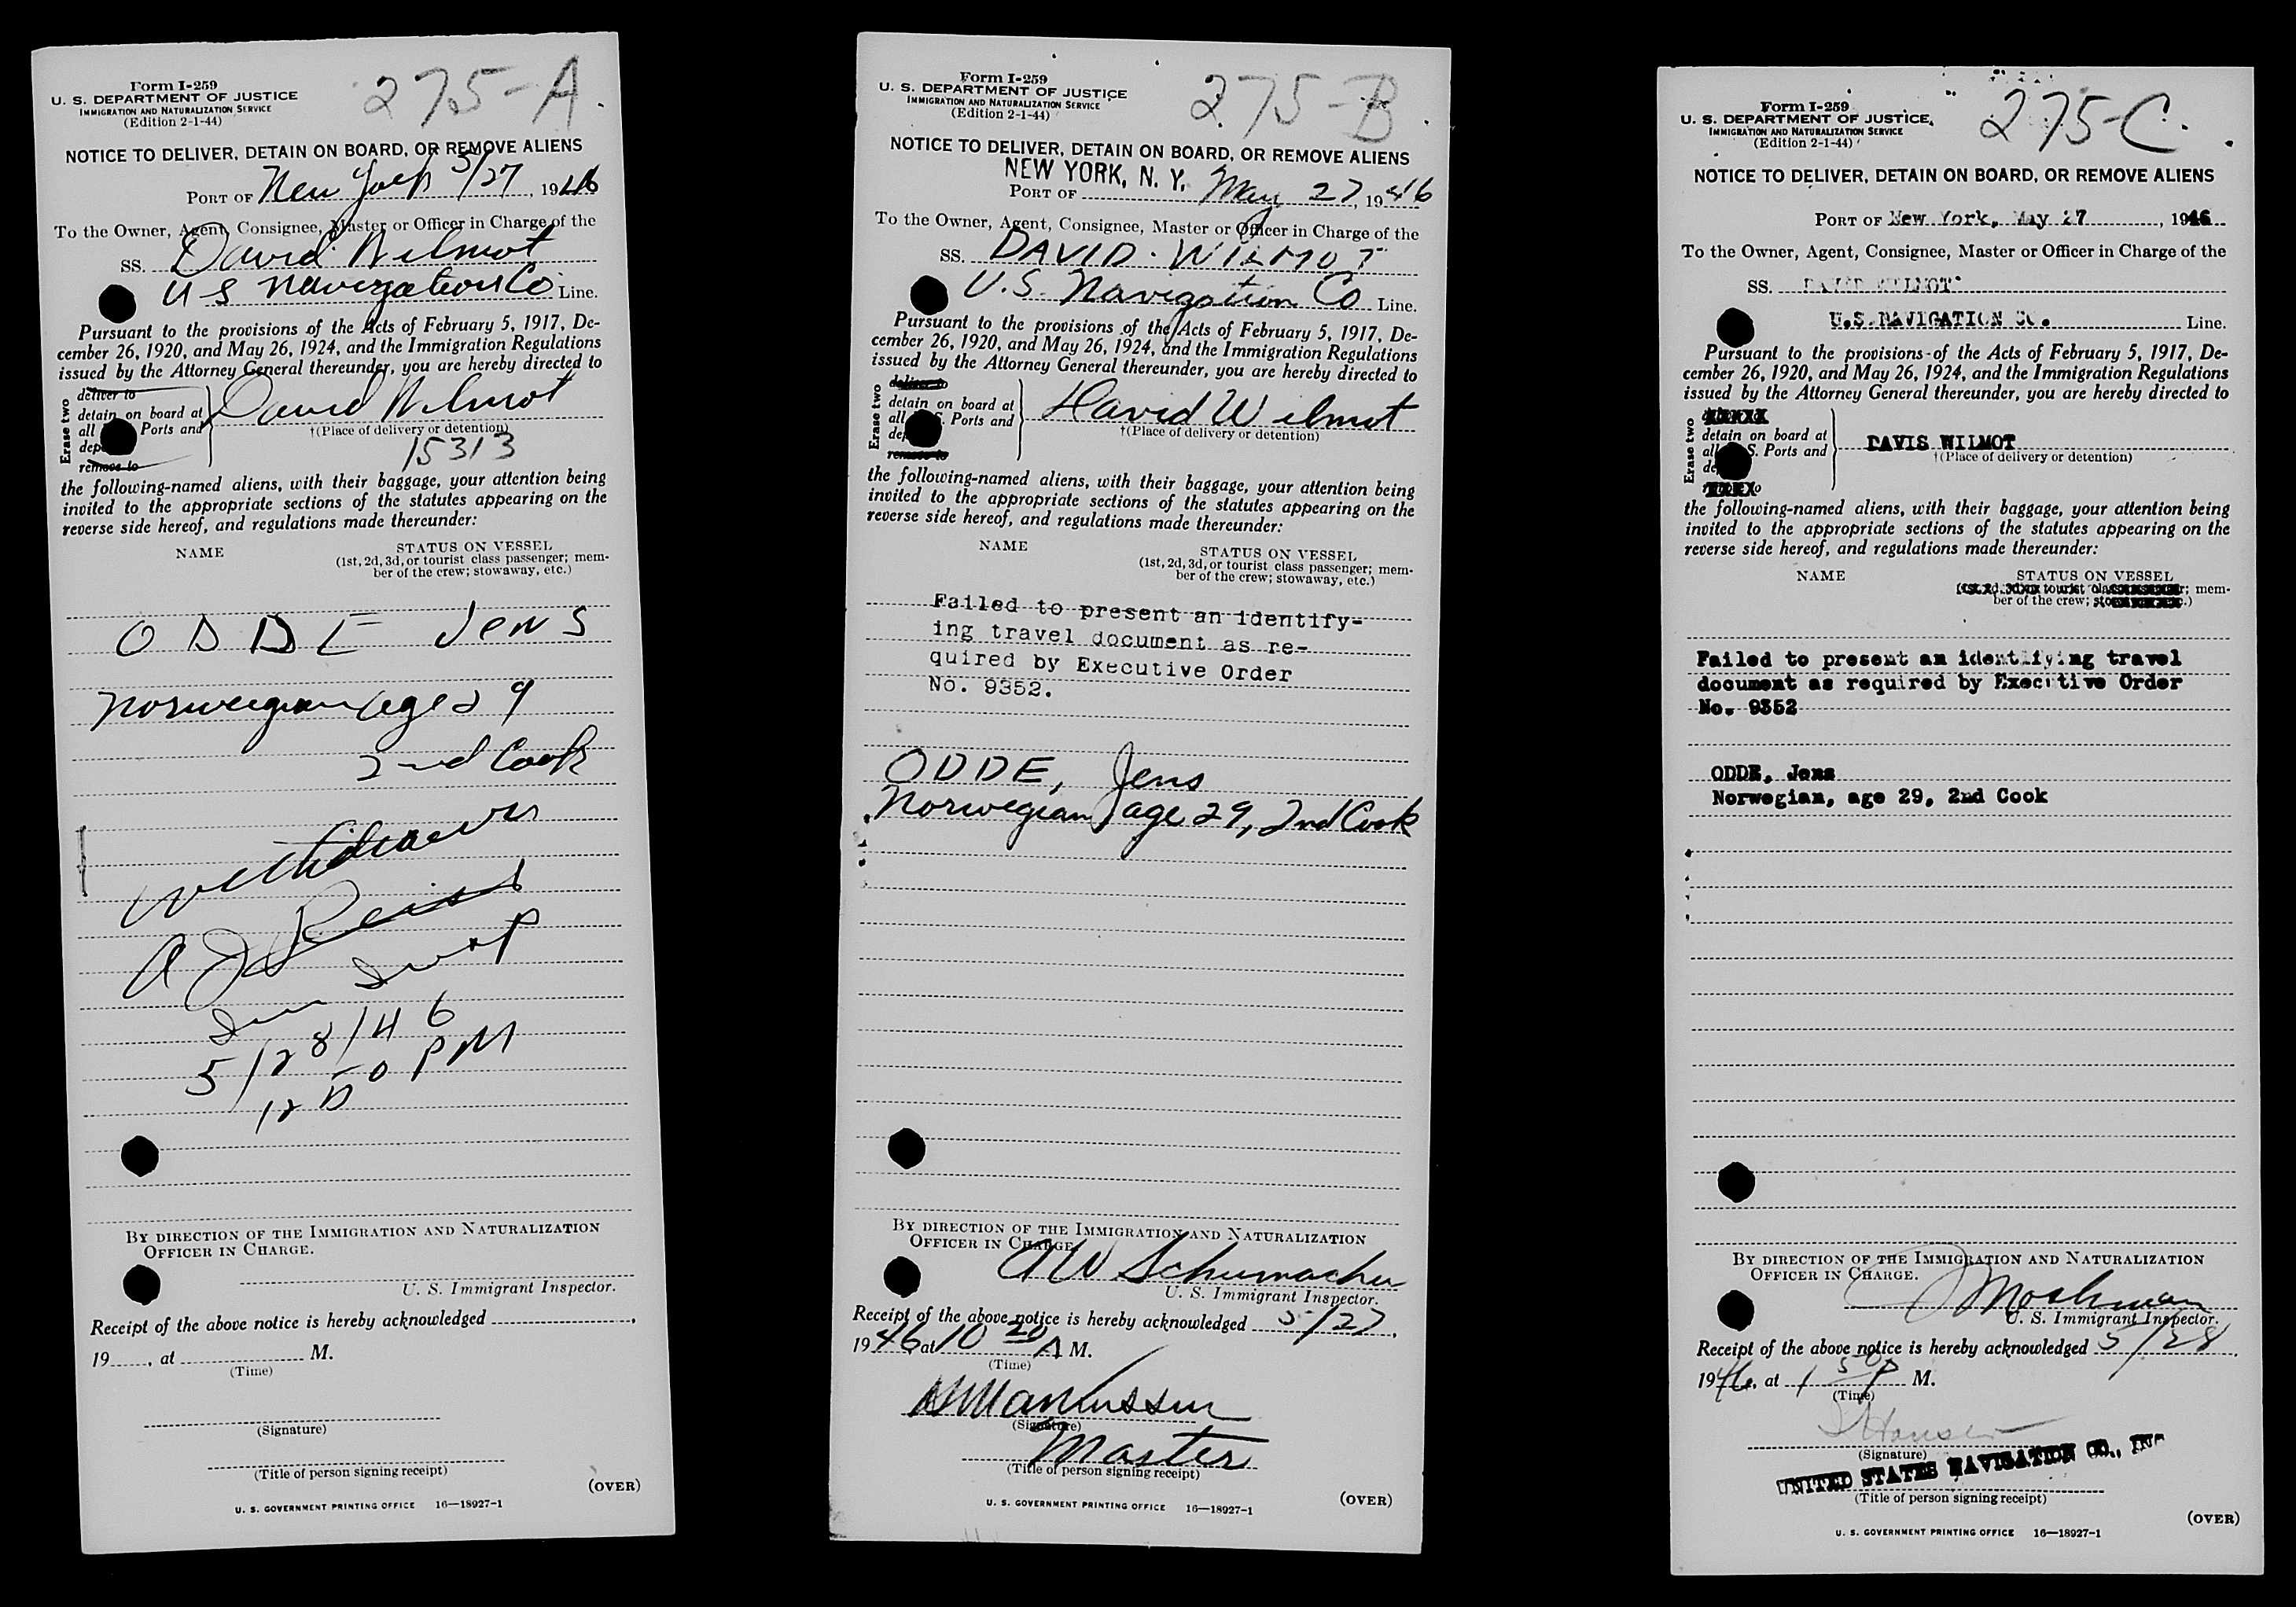 275-A.
Form I-259
U. S. DEPARTMENT OF JUSTICE
IMMIGRATION AND NATURALIZATION SERVICE
(Edition 2-1-44)
NOTICE TO DELIVER, DETAIN ON BOARD, OR REMOVE ALIENS
PORT OF New York 5/27, 1946
To the Owner, Agent, Consignee, Master or Officer in Charge of the
SS. David Wilmot
U S Navigation Co. Line.
Pursuant to the provisions of the Acts of February 5, 1917, De-
cember 26, 1920, and May 26, 1924, and the Immigration Regulations
issued by the Attorney General thereunder, you are hereby directed to
Erase two
deliver to
detain on board at
all Ports and
dep
remove to
David Wilmot
†(Place of delivery or detention)
15313
the following-named aliens, with their baggage, your attention being
invited to the appropriate sections of the statutes appearing on the
reverse side hereof, and regulations made thereunder:
NAME
STATUS ON VESSEL
(1st, 2d, 3d, or tourist class passenger; mem-
ber of the crew; stowaway, etc.)
ODDE Jens
Norwegian age 29
2nd Cook
Withdrawn
A J Reiss
Imm Insp
5/28/46
12 50 PM
BY DIRECTION OF THE IMMIGRATION AND NATURALIZATION
OFFICER IN CHARGE.
U. S. Immigrant Inspector.
Receipt of the above notice is hereby acknowledged
19 , at M.
(Time)
(Signature)
(Title of person signing receipt)
(OVER)
U. S. GOVERNMENT PRINTING OFFICE 16—18927-1
275-B.
Form I-259
U. S. DEPARTMENT OF JUSTICE
IMMIGRATION AND NATURALIZATION SERVICE
(Edition 2-1-44)
NOTICE TO DELIVER, DETAIN ON BOARD, OR REMOVE ALIENS
NEW YORK, N. Y.
PORT OF May 27, 1946
To the Owner, Agent, Consignee, Master or Officer in Charge of the
SS. DAVID WILMOT
U.S. Navigation Co Line.
Pursuant to the provisions of the Acts of February 5, 1917, De-
cember 26, 1920, and May 26, 1924, and the Immigration Regulations
issued by the Attorney General thereunder, you are hereby directed to
Erase two
deliver to
detain on board at
all S. Ports and
de
remove to
David Wilmot
†(Place of delivery or detention)
the following-named aliens, with their baggage, your attention being
invited to the appropriate sections of the statutes appearing on the
reverse side hereof, and regulations made thereunder:
NAME
STATUS ON VESSEL
(1st, 2d, 3d, or tourist class passenger; mem-
ber of the crew; stowaway, etc.)
Failed to present an identify-
ing travel document as re-
quired by Executive Order
No. 9352.
ODDE, Jens
Norwegian, age 29, 2nd Cook
BY DIRECTION OF THE IMMIGRATION AND NATURALIZATION
OFFICER IN CHARGE.
A W Schumacher
U. S. Immigrant Inspector.
Receipt of the above notice is hereby acknowledged 5/27,
1946 at 10 20 A M.
(Time)
(Signature)
Master
(Title of person signing receipt)
(OVER)
U. S. GOVERNMENT PRINTING OFFICE 16—18927-1
275-C.
Form I-259
U. S. DEPARTMENT OF JUSTICE
IMMIGRATION AND NATURALIZATION SERVICE
(Edition 2-1-44)
NOTICE TO DELIVER, DETAIN ON BOARD, OR REMOVE ALIENS
PORT OF New York, May 27, 1946
To the Owner, Agent, Consignee, Master or Officer in Charge of the
SS. DAVID WILMOT
U.S. NAVIGATION CO. Line.
Pursuant to the provisions of the Acts of February 5, 1917, De-
cember 26, 1920, and May 26, 1924, and the Immigration Regulations
issued by the Attorney General thereunder, you are hereby directed to
Erase two
detain on board at
all S. Ports and
de
DAVIS WILMOT
†(Place of delivery or detention)
the following-named aliens, with their baggage, your attention being
invited to the appropriate sections of the statutes appearing on the
reverse side hereof, and regulations made thereunder:
NAME
STATUS ON VESSEL
tourist mem-
ber of the crew;
Failed to present an identifying travel
document as required by Executive Order
No. 9352
ODDE, Jens
Norwegian, age 29, 2nd Cook
BY DIRECTION OF THE IMMIGRATION AND NATURALIZATION
OFFICER IN CHARGE.
J Moshman
U. S. Immigrant Inspector.
Receipt of the above notice is hereby acknowledged 5/28,
1946, at 1 50 P M.
(Time)
(Signature)
UNITED STATES NAVIGATION CO., INC
(Title of person signing receipt)
(OVER)
U. S. GOVERNMENT PRINTING OFFICE 16—18927-1